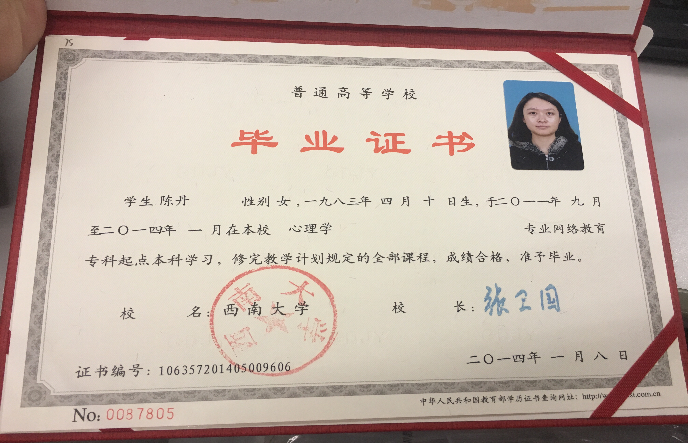 75
普通高等学校
毕业证书
学生 陈丹 性别 女,一九八三年 四月 十日生,于二〇一一年 九月
至二〇一四年 一月在本校 心理学 专业网络教育
专科起点本科学习,修完教学计划规定的全部课程,成绩合格、准予毕业。
校 名:西南大学 校 长:张卫国
西南大学
证书编号:106357201405009606 二〇一四年 一月八日
No: 0087805 中华人民共和国教育部学历证书查询网址: